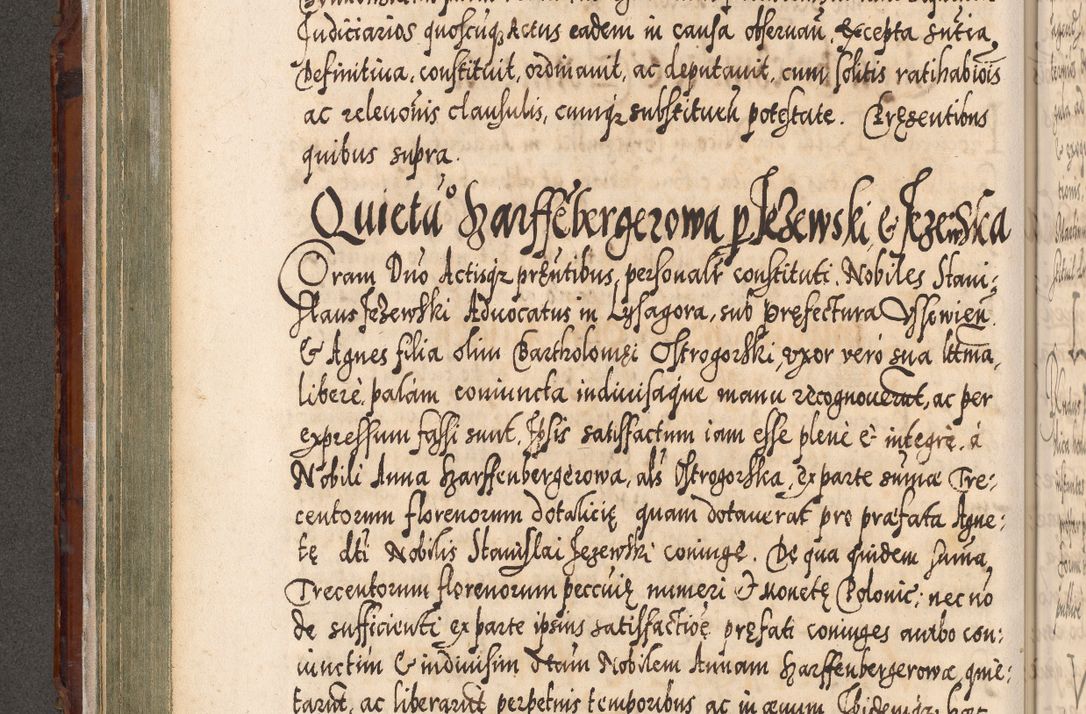 Judiciarios quoscuq Actus eadem in causa observan, Excepta sntia
Definitiua, constituit, ordinauit, ac deputauit, cum solitis ratihabiois
ac releuonis clausulis, cumq substituen potestate. Presentibns
quibus supra.
Quietuo Harffebergerowa p Jeżewski, & Jeżewska
Coram Duo Actisq prentibus, personalr constituti. Nobiles Stani:
slaus Jeżewski Aduocatus in Lysagora, sub Pręfectura Vssowien
& Agnes filia olim Bartholomęi Ostrogorski, vxor vero sua lttma,
liberè, palám coniuncta indiuisaque manu recognouerut, ac per
expressum fassi sunt, Ipsis satisfactum iam esse plenè è integrè, á
Nobili Anna Harffenbergerowa, als Ostrogorska, ex parte suma Tre:
centorum florenorum dotalicię quam dotauerat pro præfata Agne:
tę dti Nobilis Stanislai Jeżewski coniugę. De qua quidem suma
Trecentorum florenorum peccuię numeri & Monetę Polonic; nec no
de sufficienti ex parte ipsius satisfactioe pręfati coniuges ambo con:
iunctim & indiuisim dtam Nobilem Annam Harffenbergerowa, quie:
tarut, ac liberarut perpetuis temporibus ac in æuum